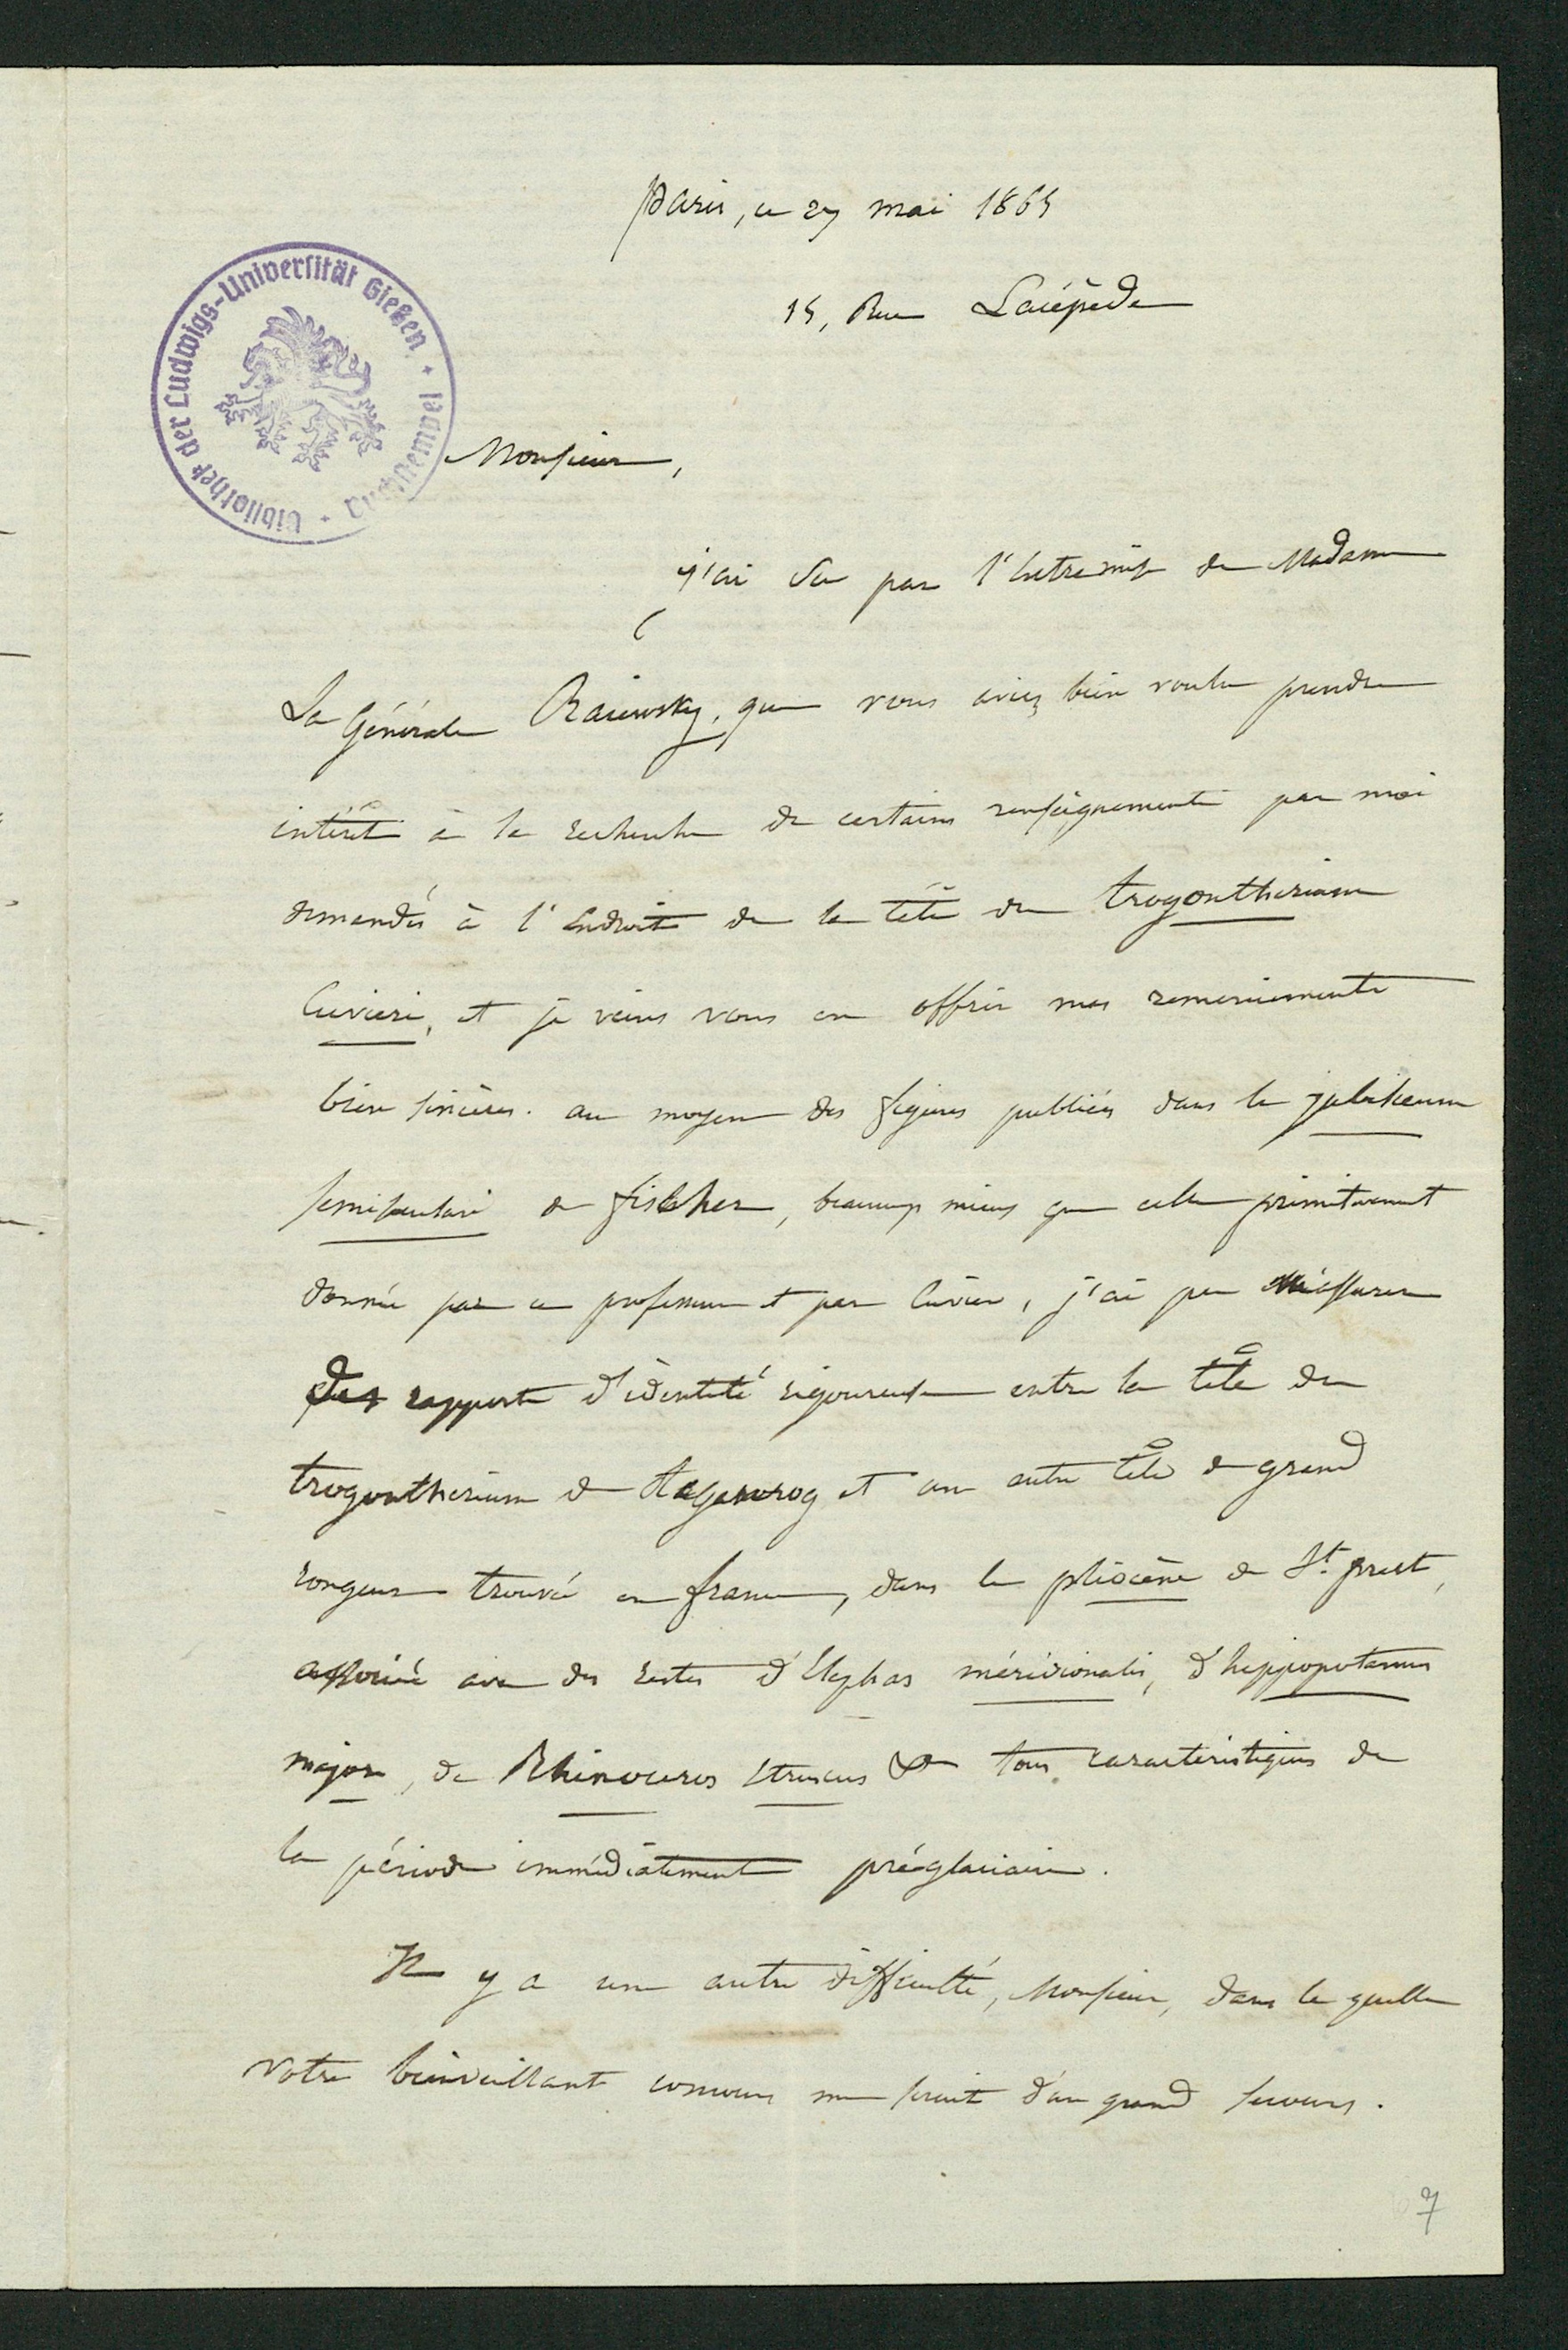 Paris, ce 27 mai 1865
15, Rue Lacépède
Bibliothek der Ludwigs-Universität Gießen
Monsieur,
j'ai su par l'entremise de Madame
La Générale Raiewsky, que vous aviez bien voulu prendre
intérêt à la recherche de certains renseignements par moi
demandés à l'endroit de la tête du trogontherium
Cuvieri, et je viens vous en offrir mes remerciements
bien sincères. au moyen des figures publiées dans le jubilaeum
semisaeculari de fischer, beaucoup mieux que celle primitivement
donnée par ce professeur et par Cuvier, j'ai pu m'assurer
des rapports d'identité rigoureuse entre la tête du
trogontherium de taganrog et une autre tête de grand
rongeur trouvée en france, dans le pliocène de St. prest,
associée avec des restes d'Elephas méridionalis, d'hippopotamus
major, de Rhinoceros etruscus &a tous caractéristiques de
la période immédiatement préglaciaire.
Il y a une autre difficulté, Monsieur, dans la quelle
votre bienveillant concours me serait d'un grand secours.
7